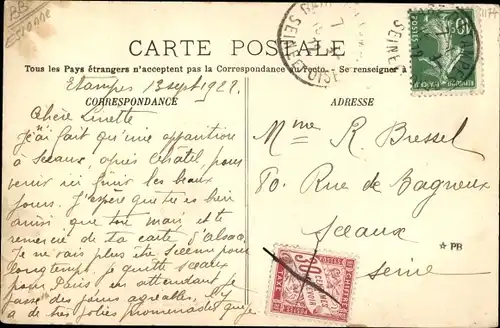 BB
Essonne
CARTE POSTALE
Tous les Pays étrangers n'acceptent pas la Correspondance au recto. - Se renseigner à
Etampes 13 sept 1922.
CORRESPONDANCE
ADRESSE
Chère Linette
j'ai fait qu'une apparition
à Sceaux, après Chatel, pour
venir ici finir les beaux
jours. J'espère que tu es bien
ainsi que ton mari, et te
remercie de ta carte d'Alsace
Je ne vais plus être Scéenne pour
longtemps, je quitte Sceaux
pour Paris en attendant je
passe des jours agréables, il y
a de très jolies promenades que
Mme R. Bressel
80, Rue de Bagneux
Sceaux
Seine
* PB
SEINE ET OISE
SEINE
10
POSTES
30
CENTIMES
A PERCEVOIR
CHIFFRE
TAXE